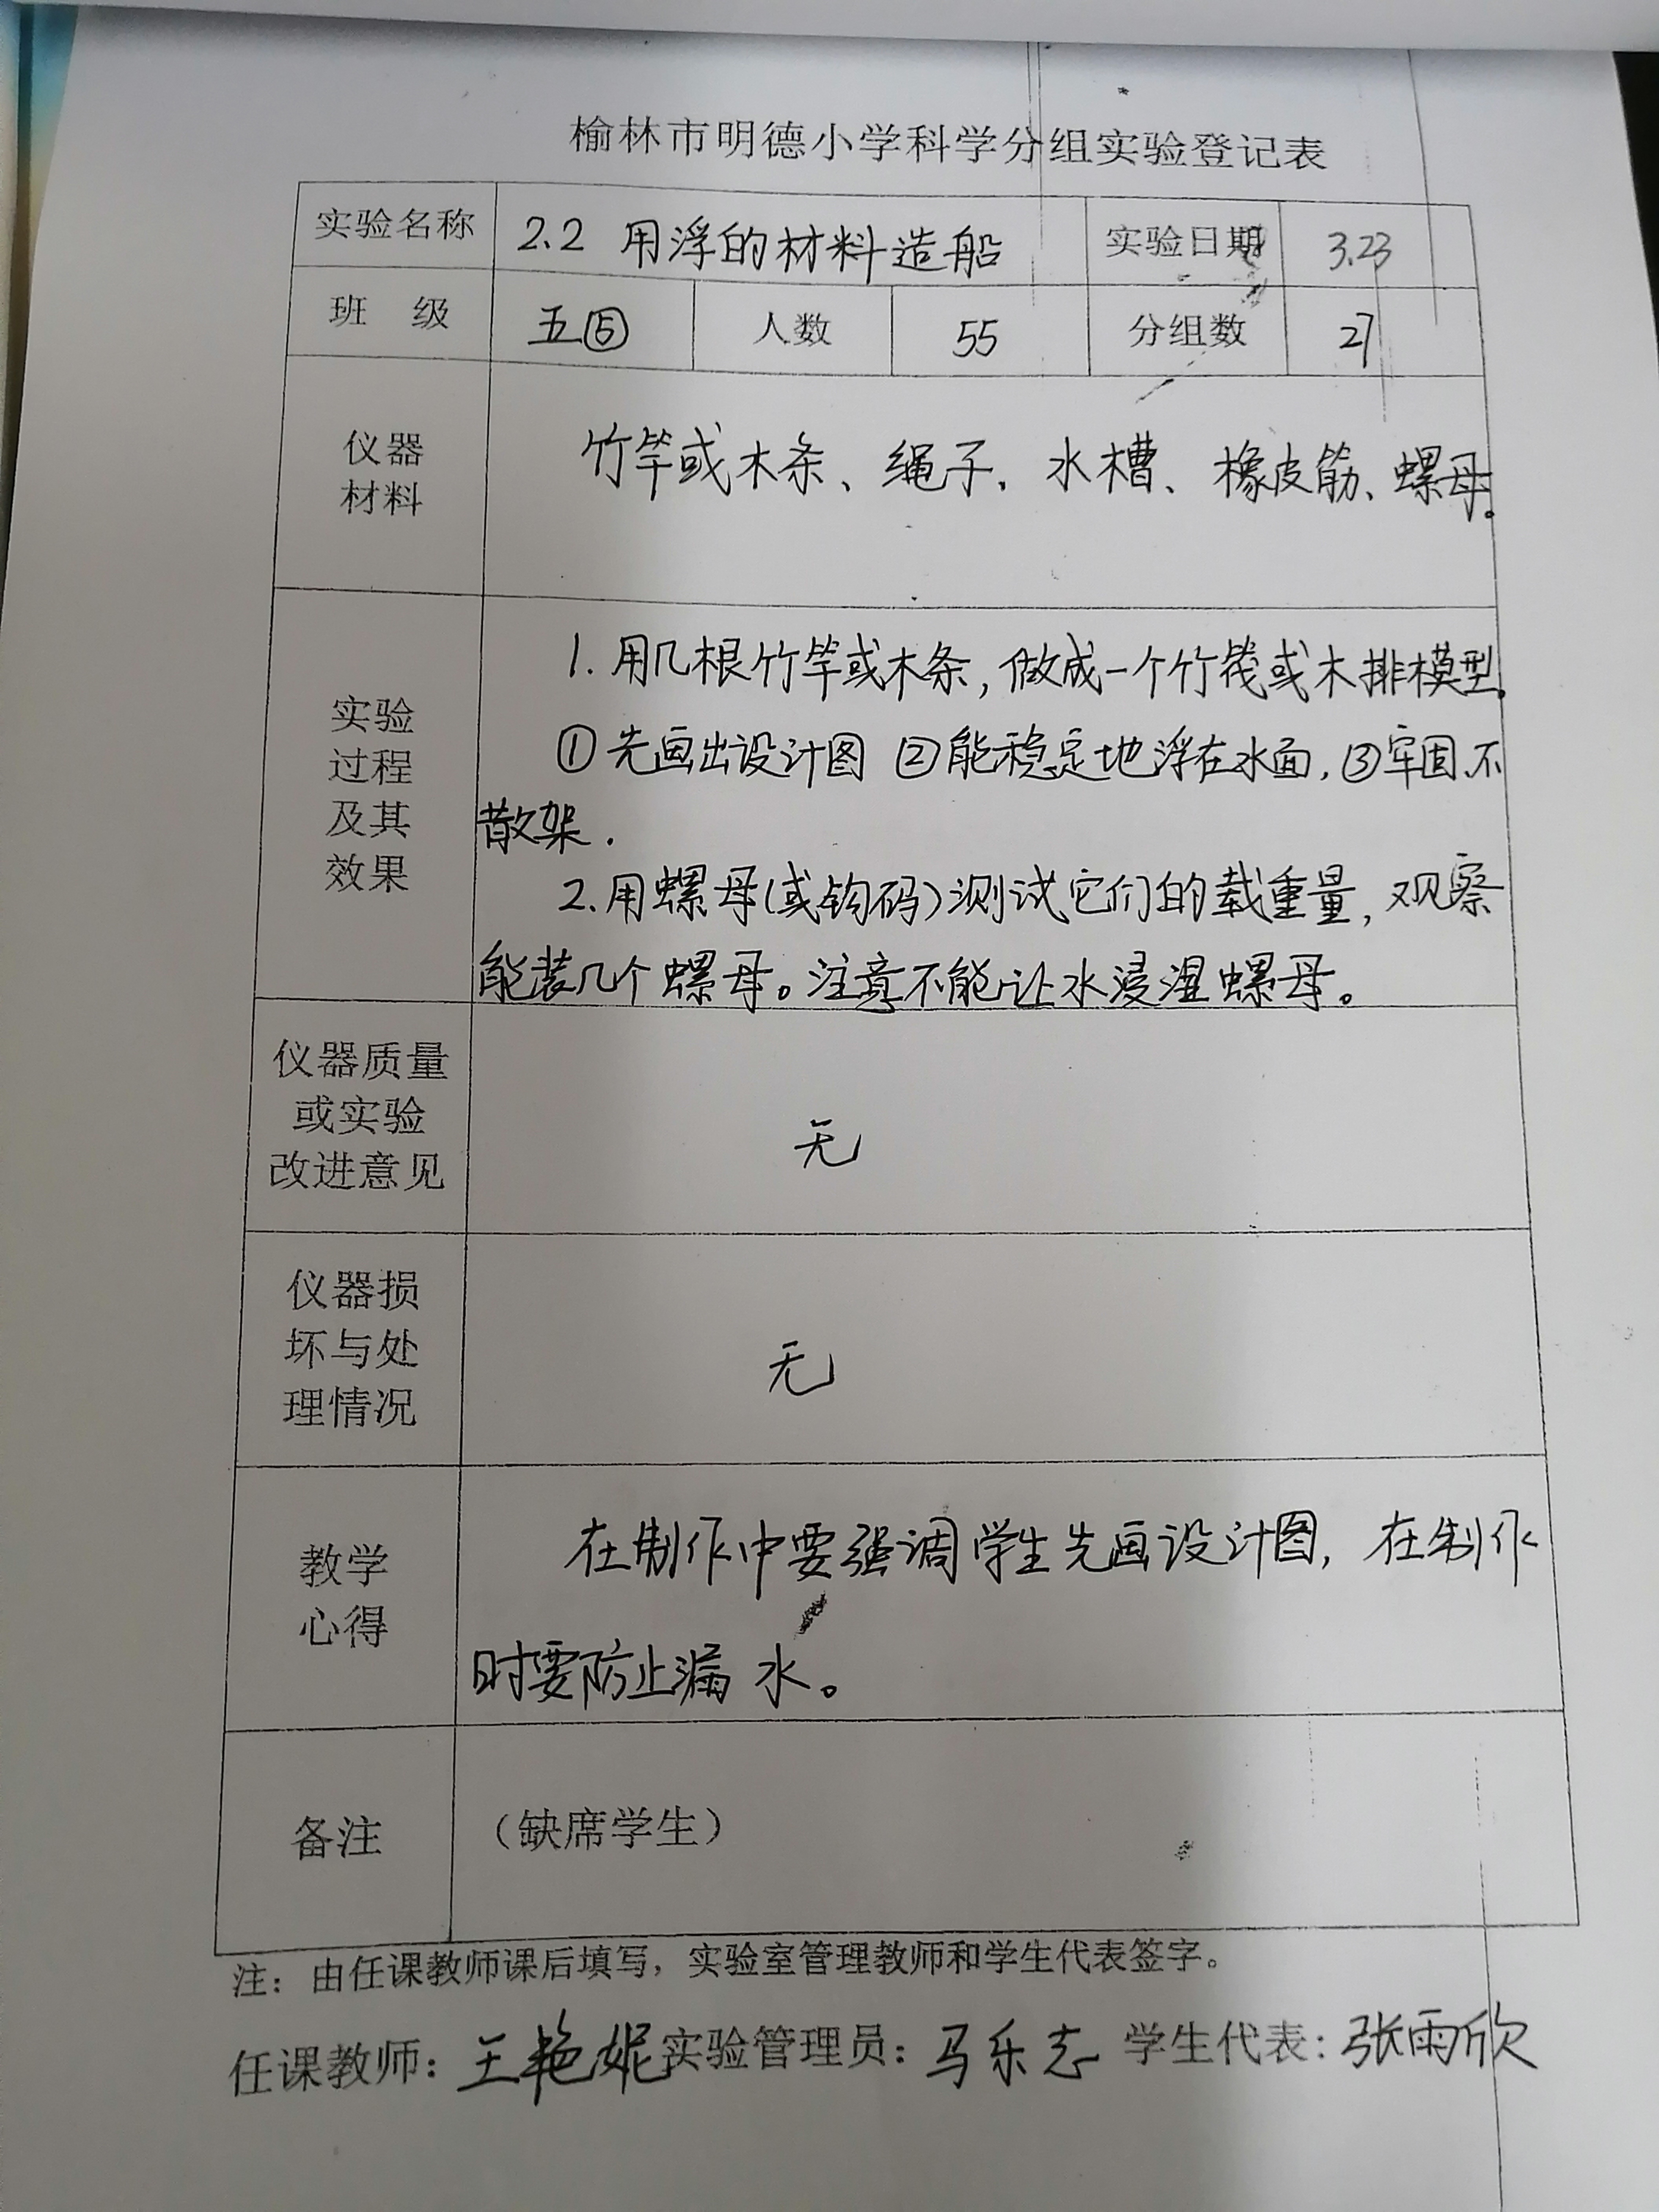 榆林市明德小学科学分组实验登记表
实验名称 2.2 用浮的材料造船 实验日期 3.23
班 级 五⑤ 人数 55 分组数 27
仪器
材料
竹竿或木条、绳子、水槽、橡皮筋、螺母。
实验
过程
及其
效果
1. 用几根竹竿或木条,做成一个竹筏或木排模型。
①先画出设计图 ②能稳定地浮在水面,③牢固、不
散架.
2.用螺母(或钩码)测试它们的载重量,观察
能装几个螺母。注意不能让水浸湿螺母。
仪器质量
或实验
改进意见
无
仪器损
坏与处
理情况
无
教学
心得
在制作中要强调学生先画设计图,在制作
时要防止漏水。
备注 （缺席学生）
注：由任课教师课后填写，实验室管理教师和学生代表签字。
任课教师：王艳妮 实验管理员：马乐志 学生代表：张雨欣